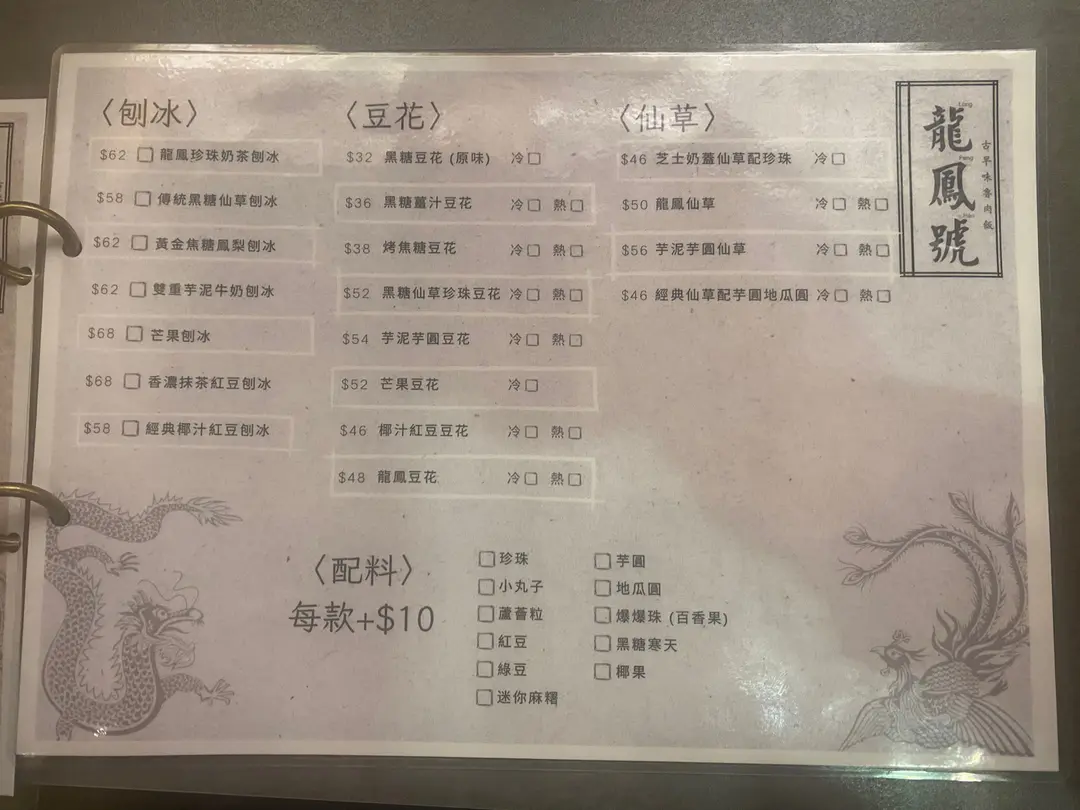 〈刨冰〉
$62 龍鳳珍珠奶茶刨冰
$58 傳統黑糖仙草刨冰
$62 黃金焦糖鳳梨刨冰
$62 雙重芋泥牛奶刨冰
$68 芒果刨冰
$68 香濃抹茶紅豆刨冰
$58 經典椰汁紅豆刨冰
〈豆花〉
$32 黑糖豆花 (原味) 冷
$36 黑糖薑汁豆花 冷 熱
$38 烤焦糖豆花 冷 熱
$52 黑糖仙草珍珠豆花 冷 熱
$54 芋泥芋圓豆花 冷 熱
$52 芒果豆花 冷
$46 椰汁紅豆豆花 冷 熱
$48 龍鳳豆花 冷 熱
〈仙草〉
$46 芝士奶蓋仙草配珍珠 冷
$50 龍鳳仙草 冷 熱
$56 芋泥芋圓仙草 冷 熱
$46 經典仙草配芋圓地瓜圓 冷 熱
龍鳳號
Long
Feng
Hao
古早味魯肉飯
〈配料〉
每款+$10
珍珠
小丸子
蘆薈粒
紅豆
綠豆
迷你麻糬
芋圓
地瓜圓
爆爆珠 (百香果)
黑糖寒天
椰果